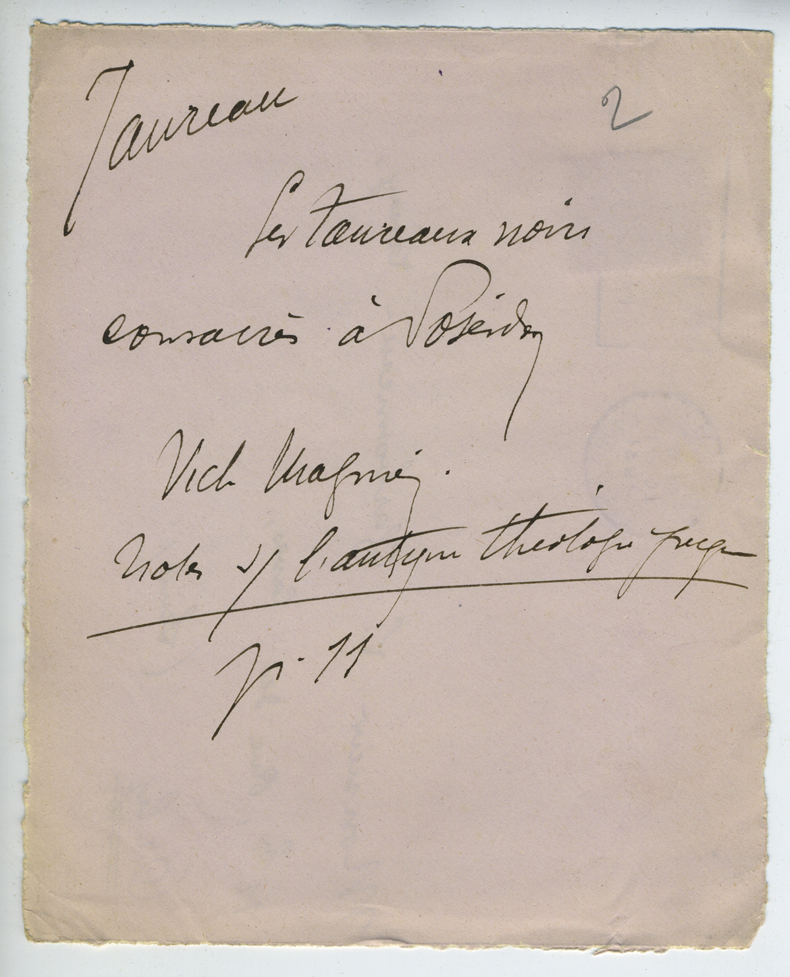 Taureau
2
Les taureaux noirs
consacrés à Poséidon
Vict Magnien.
Notes s/ l'antique théologie grecque
p. 11